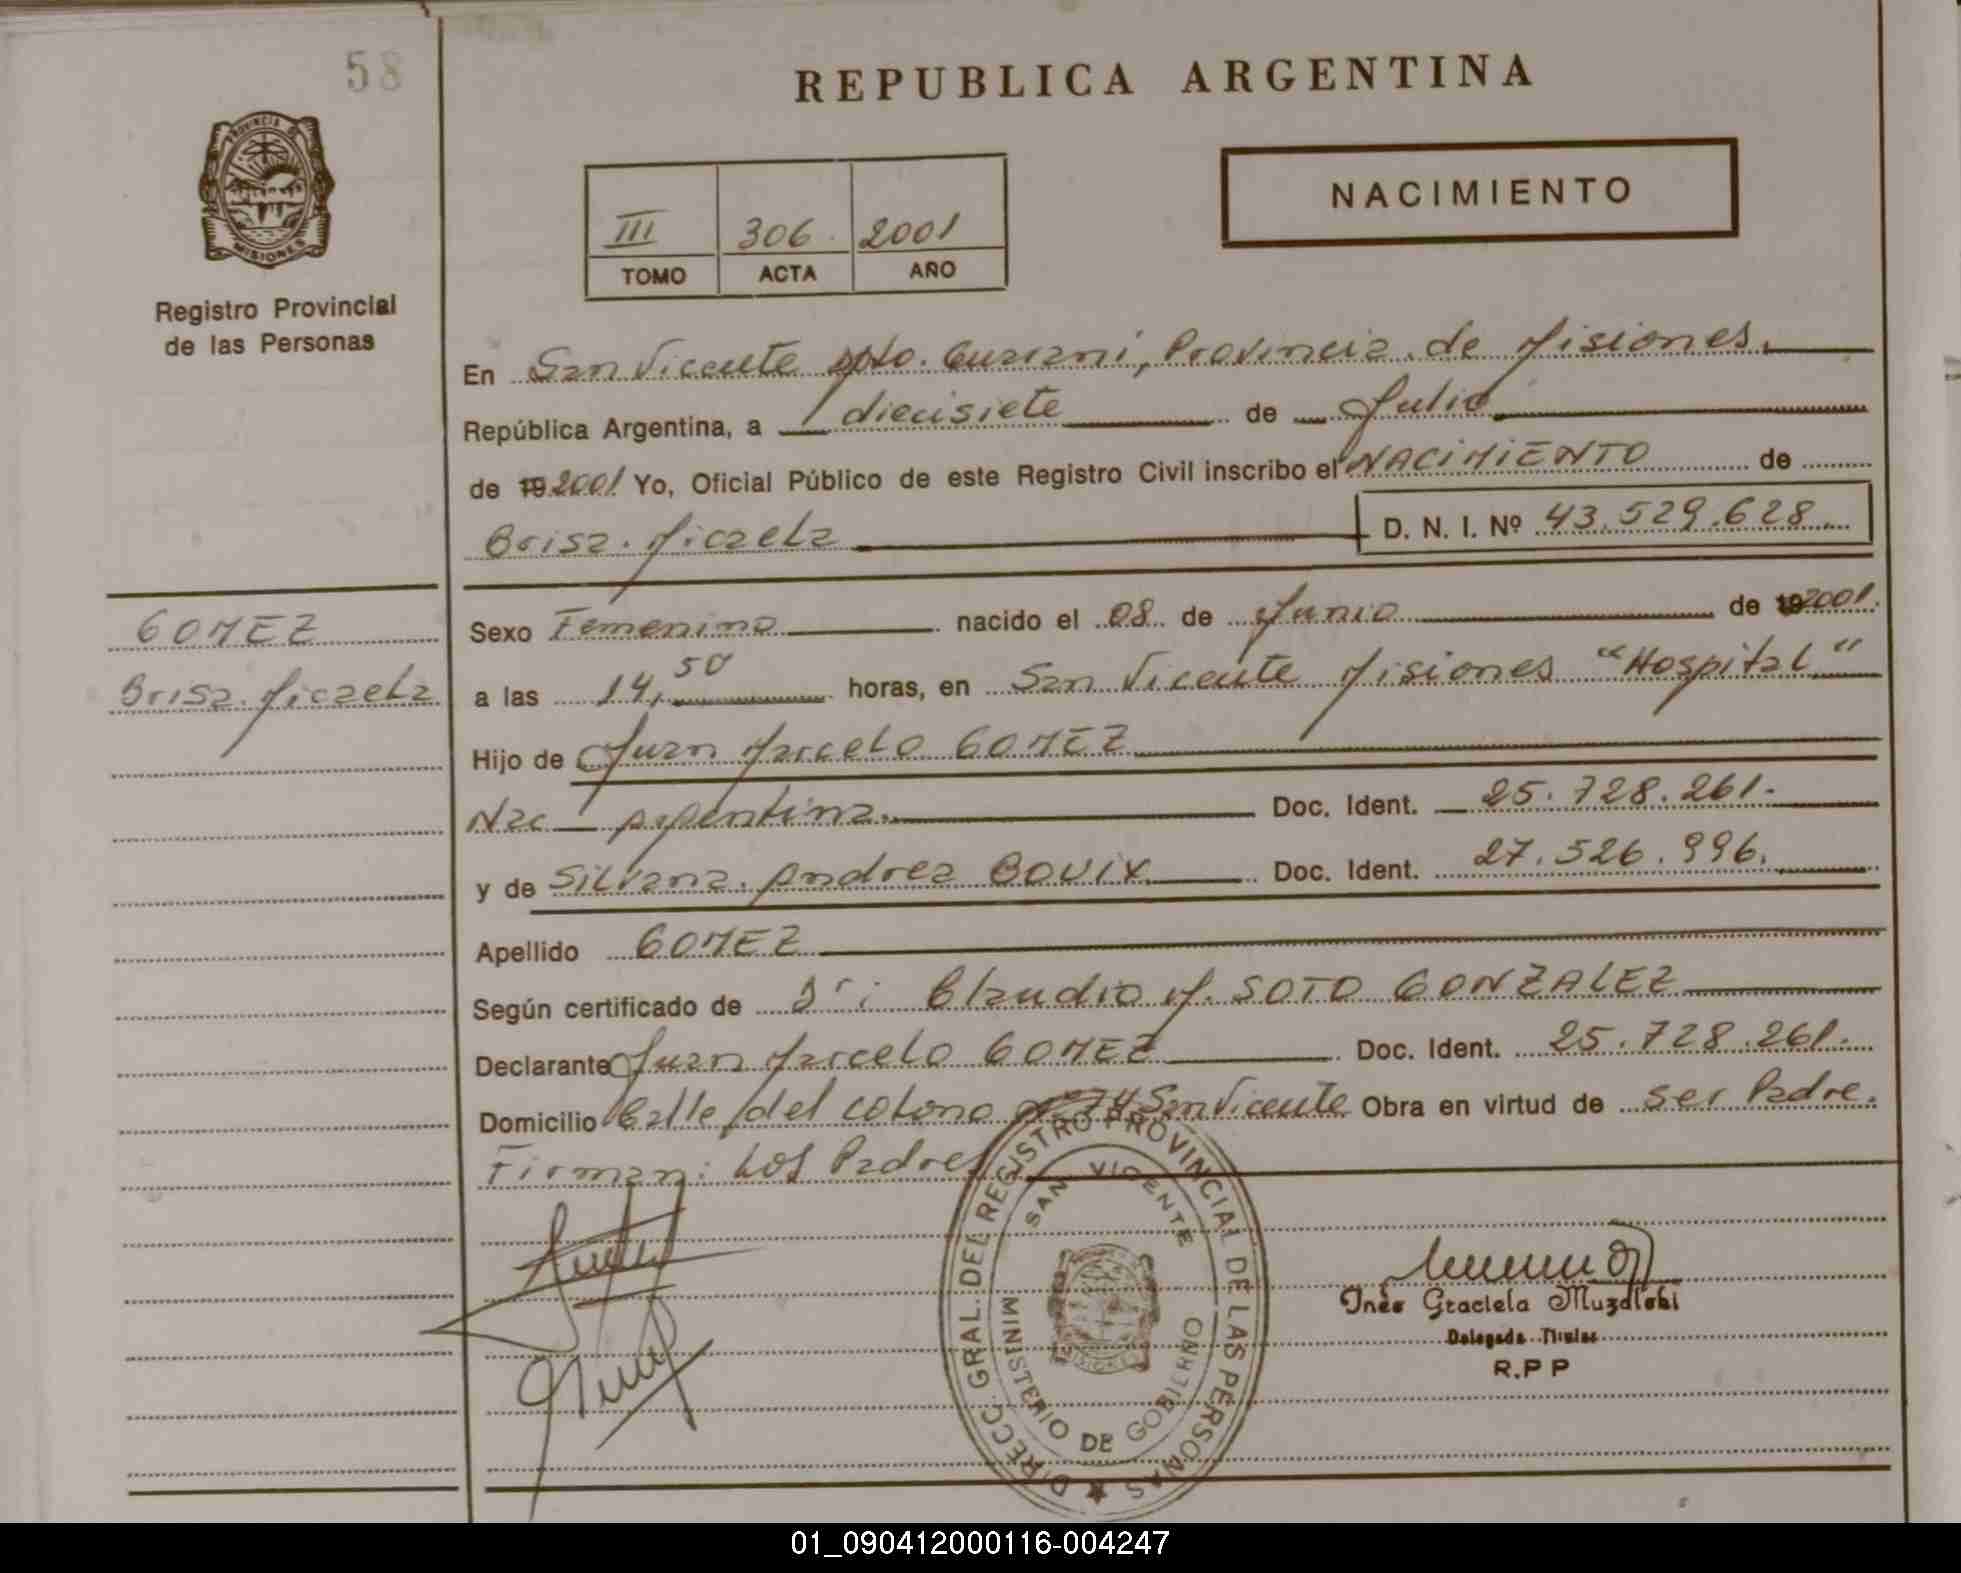 58
REPUBLICA ARGENTINA
PROVINCIA DE
MISIONES
Registro Provincial
de las Personas
III 306 2001
TOMO ACTA AÑO
NACIMIENTO
En San Vicente Dpto. Guaraní, Provincia de Misiones.
República Argentina, a diecisiete de Julio
de 19 2001 Yo, Oficial Público de este Registro Civil inscribo el NACIMIENTO de
Brisa Micaela D. N. I. Nº 43.529.628
GOMEZ
Brisa Micaela
Sexo Femenino nacido el 08 de Junio de 19 2001.
a las 14,50 horas, en San Vicente Misiones "Hospital"
Hijo de Juan Marcelo GOMEZ
Nac Argentina. Doc. Ident. 25.728.261.
y de Silvana Andrea BOUIX Doc. Ident. 27.526.996.
Apellido GOMEZ
Según certificado de Claudio M. SOTO GONZALEZ
Declarante Juan Marcelo GOMEZ Doc. Ident. 25.728.261.
Domicilio Calle del colono San Vicente Obra en virtud de ser Padre.
Firman: Los Padres
DIRECC. GRAL. DEL REGISTRO PROVINCIAL DE LAS PERSONAS
SAN VICENTE
MINISTERIO DE GOBIERNO
Inés Graciela
Delegada Titular
R.P P
01_090412000116-004247